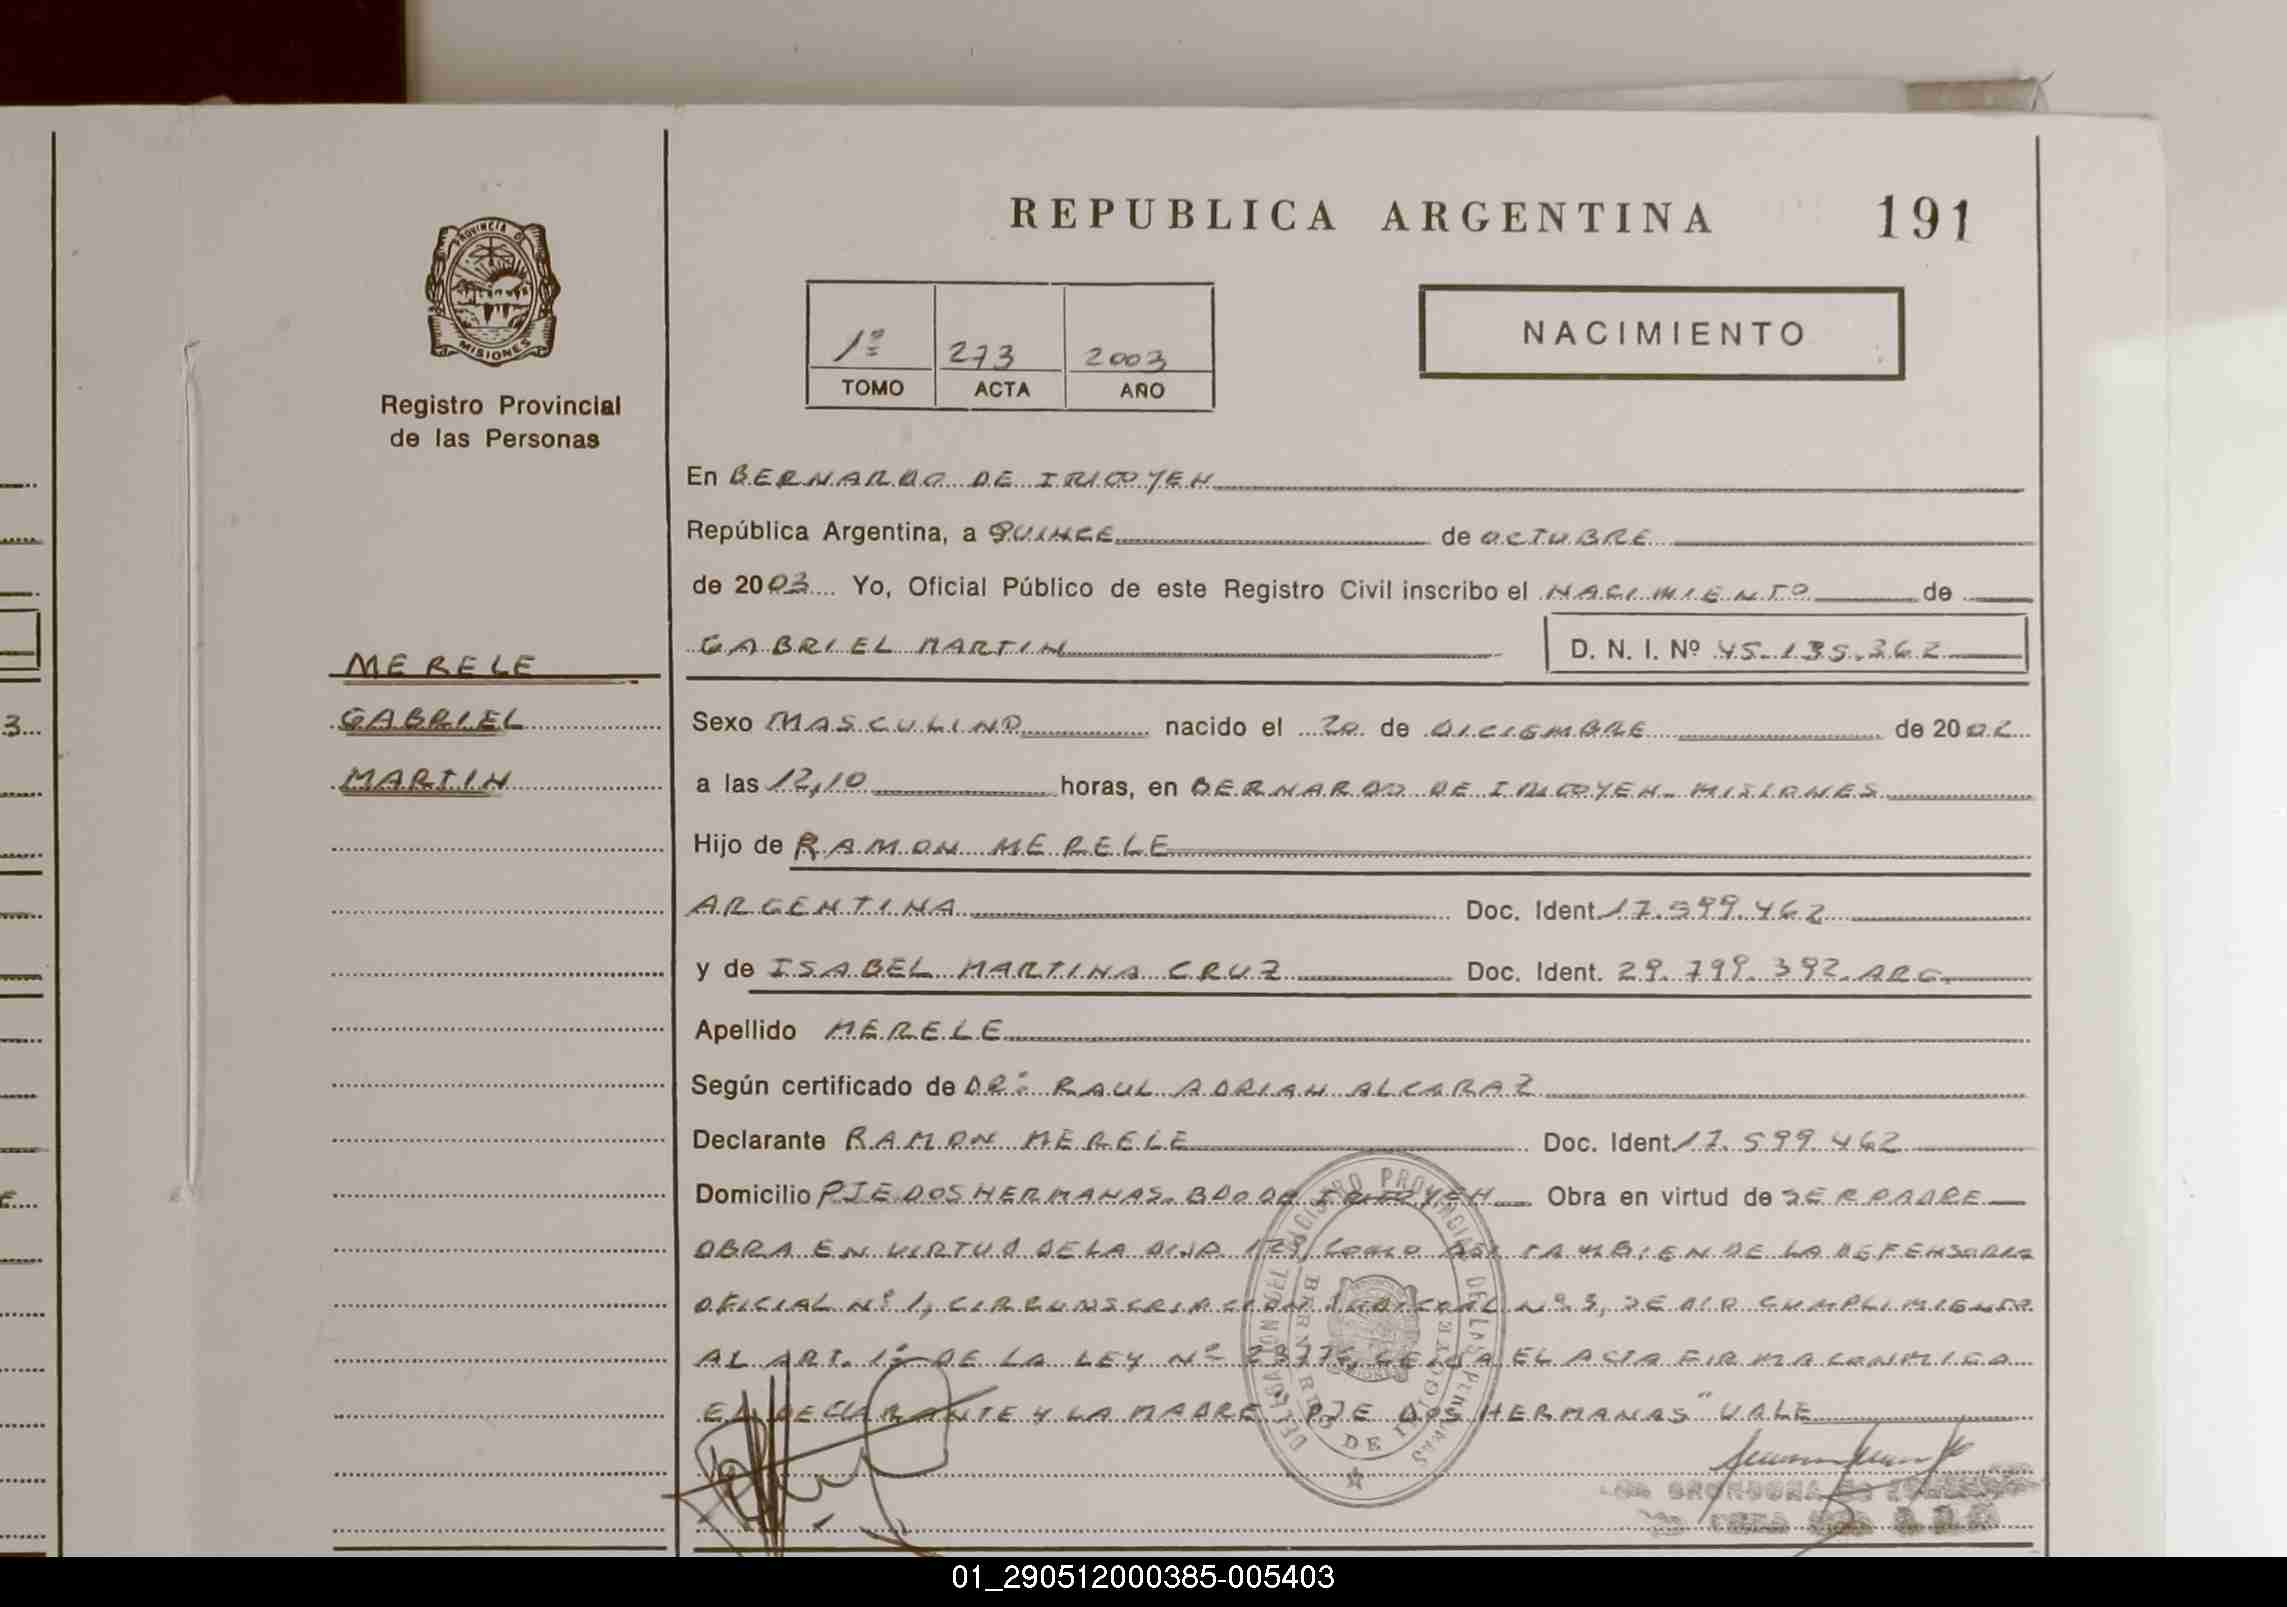 REPUBLICA ARGENTINA 191
PROVINCIA DE
MISIONES
Registro Provincial
de las Personas
1º 273 2003
TOMO ACTA AÑO
NACIMIENTO
En BERNARDO DE IRIGOYEN
República Argentina, a QUINCE de OCTUBRE
de 2003 Yo, Oficial Público de este Registro Civil inscribo el NACIMIENTO de
GABRIEL MARTIN D. N. I. Nº 45.135.362
MERELE
GABRIEL
MARTIN
Sexo MASCULINO nacido el 20 de DICIEMBRE de 2002
a las 12,10 horas, en BERNARDO DE IRIGOYEN. MISIONES
Hijo de RAMON MERELE
ARGENTINA Doc. Ident. 17.599.462
y de ISABEL MARTINA CRUZ Doc. Ident. 29.799.392 ARG.
Apellido MERELE
Según certificado de DR: RAUL ADRIAN ALCARAZ
Declarante RAMON MERELE Doc. Ident. 17.599.462
Domicilio PJE DOS HERMANAS. BDO DE IRIGOYEN Obra en virtud de SER PADRE
OBRA EN VIRTUD DE LA COMO ASI TAMBIEN DE LA DEFENSORIA
OFICIAL Nº 1, CIRCUNSCRIPCION JUDICIAL Nº 3, SE DIO CUMPLIMIENTO
AL ART. 1º DE LA LEY Nº EL ACTA FIRMA CONMIGO
EL DECLARANTE Y LA MADRE. "PJE DOS HERMANAS" VALE
DELEGACION DEL REGISTRO PROVINCIAL DE LAS PERSONAS
BERNARDO DE IRIGOYEN
01_290512000385-005403